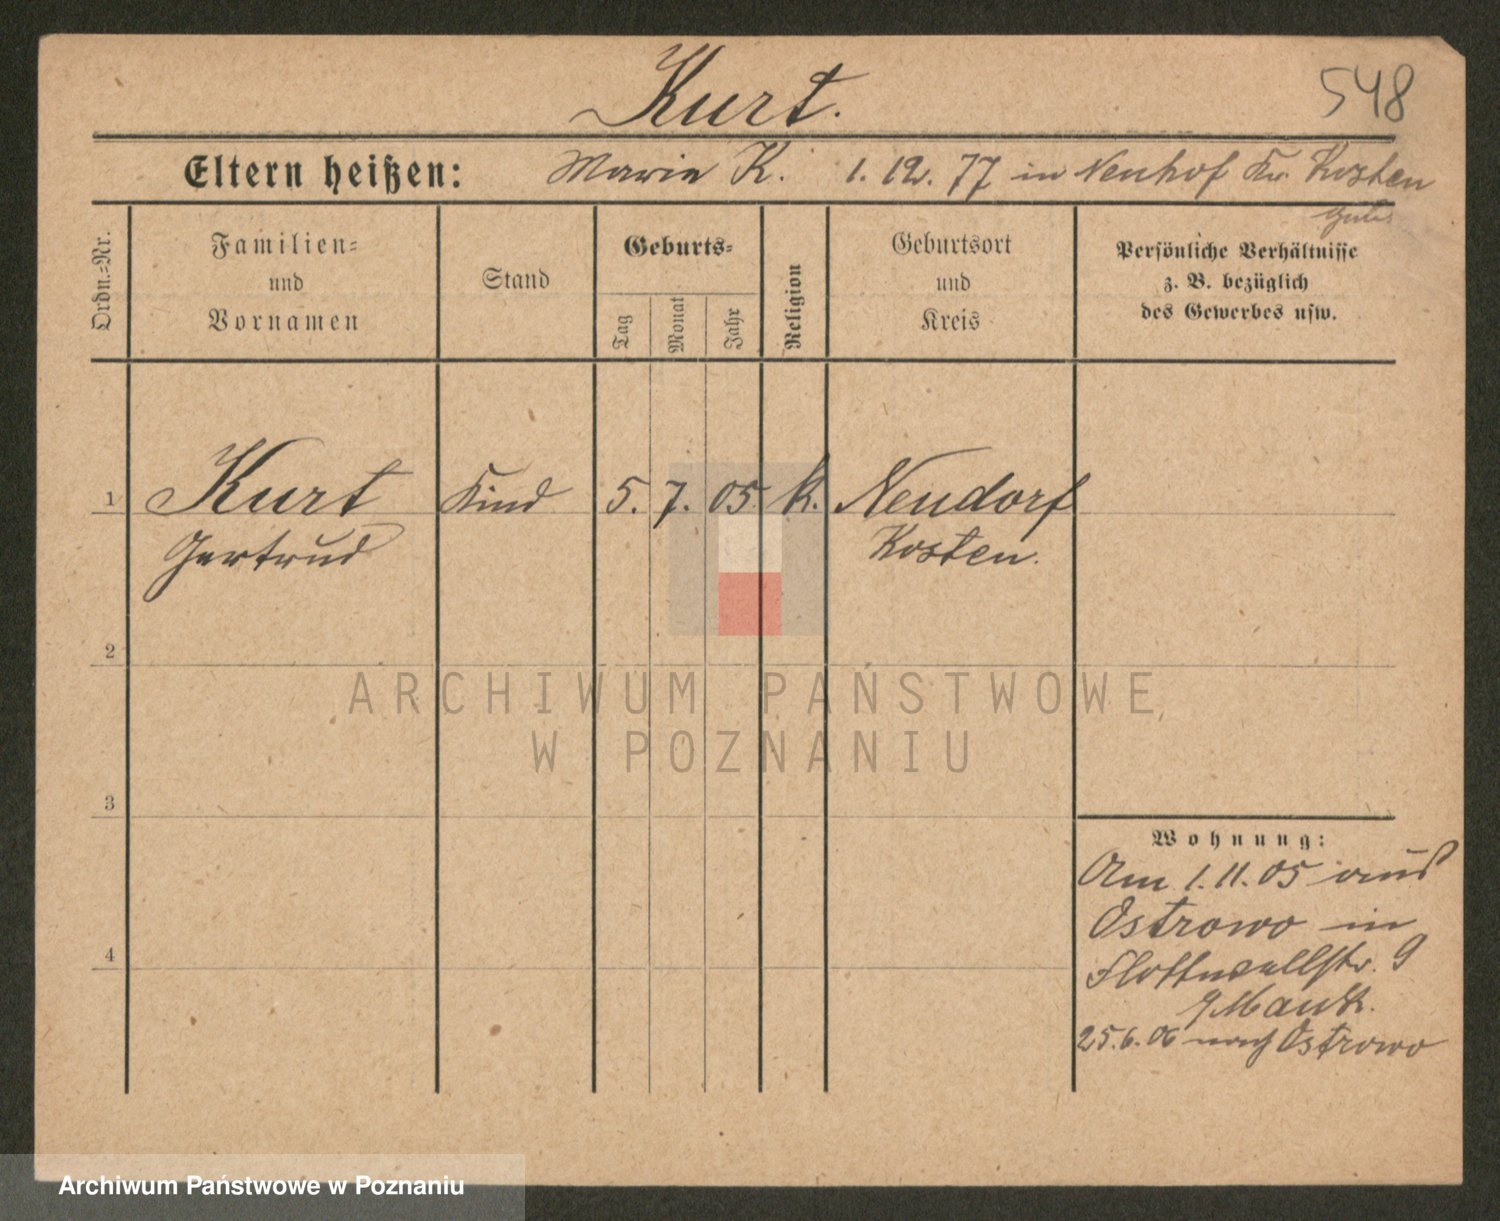 Kurt.
548
Eltern heißen: Marie K. 1. 12. 77 in Neuhof Kr. Kosten
Ordn.=Nr.
Familien=
und
Vornamen
Stand
Geburts=
Tag
Monat
Jahr
Religion
Geburtsort
und
Kreis
Persönliche Verhältnisse
z. B. bezüglich
des Gewerbes usw.
1 Kurt Kind 5. 7. 05 k. Neudorf
Gertrud Kosten.
2
ARCHIWUM PAŃSTWOWE
W POZNANIU
3
Wohnung:
Am 1.11.05 aus
Ostrowo in
Flottwellstr. 9
4
25.6.06 nach Ostrowo
Archiwum Państwowe w Poznaniu